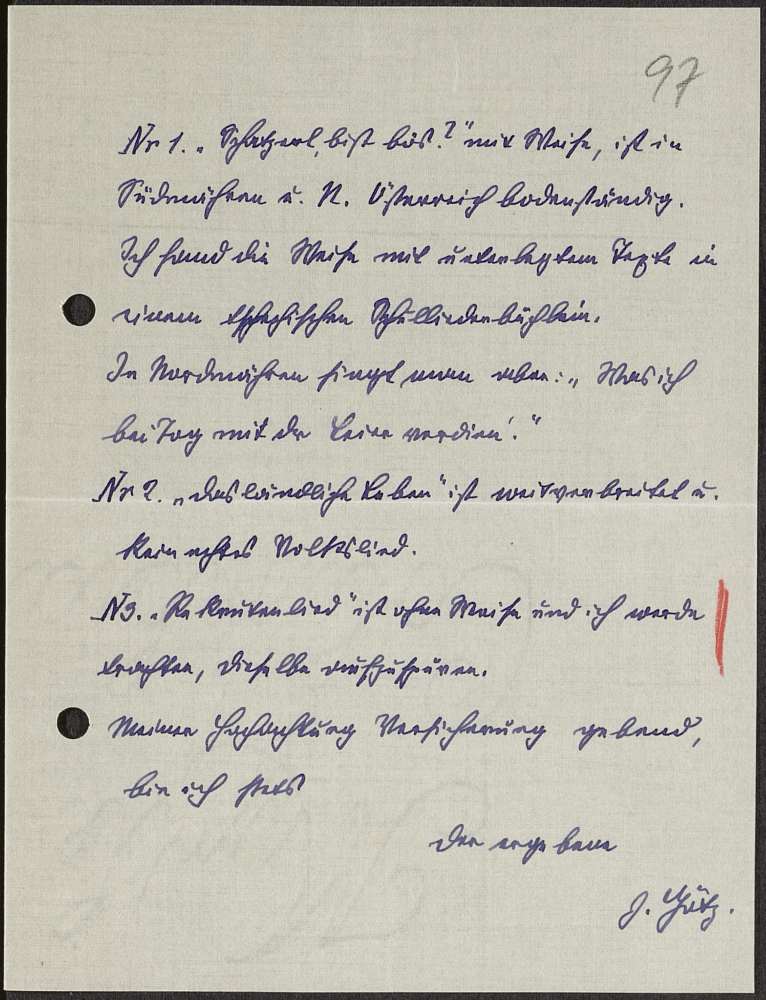 97
Nr 1. „Schatzerl, bist bös?" mit Weise, ist in
Südmähren u. N. Österreich bodenständig.
Ich fand die Weise mit unterlegtem Texte in
einem tschechischen Schulliederbüchlein.
In Nordmähren singt man aber: „Was ich
bei Tag mit der Leier verdien'."
Nr 2. „das ländliche Leben" ist weitverbreitet u.
kein echtes Volkslied.
N3. „Rekrutenlied" ist ohne Weise und ich werde
trachten, dieselbe aufzuspüren.
Meiner Hochachtung Versicherung gebend,
bin ich stets
der ergebene
J. Götz.